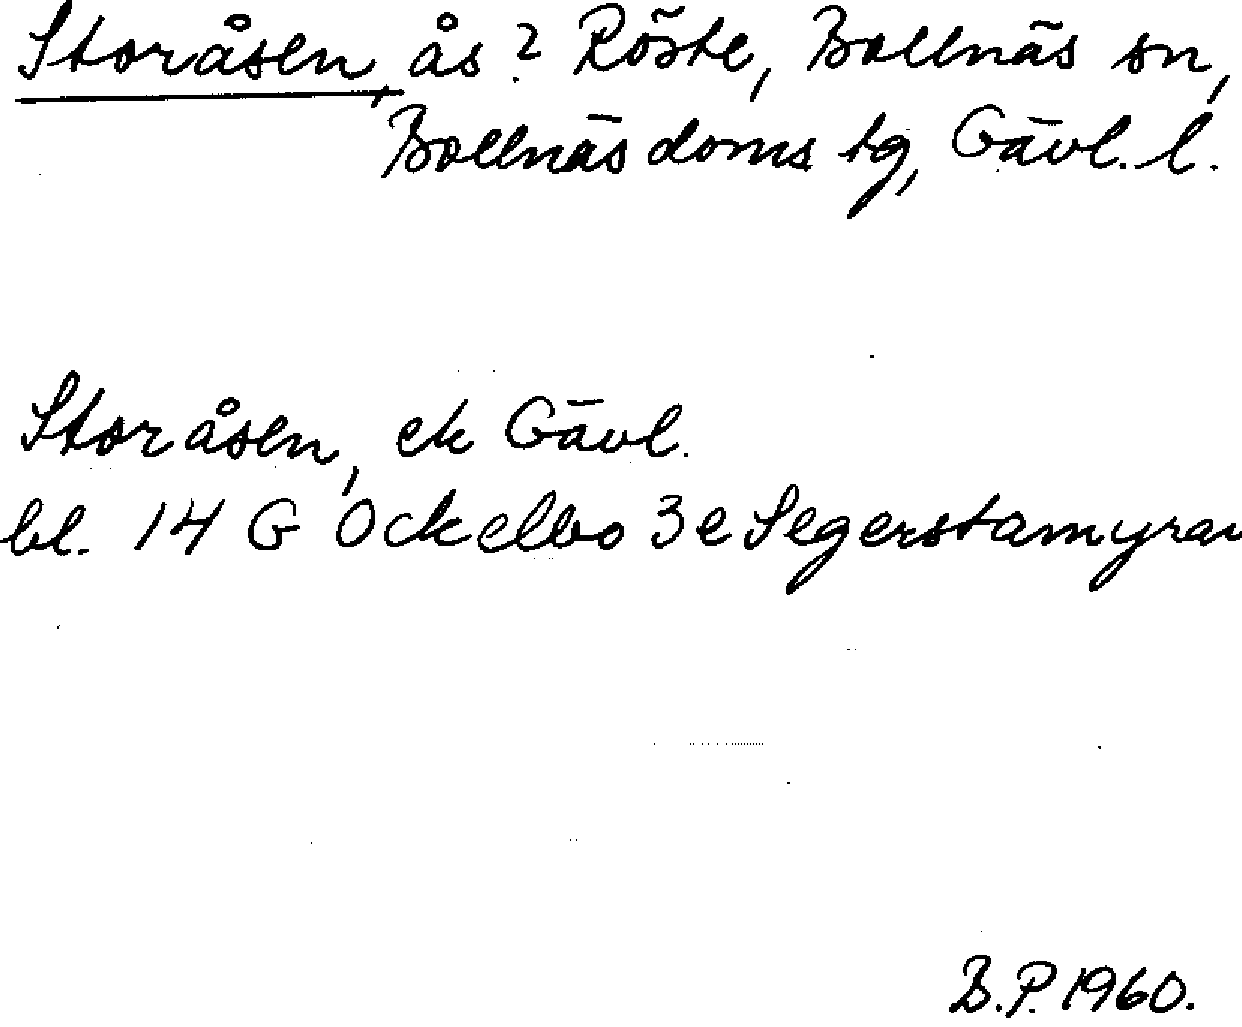 Storåsen, ås? Röste, Bollnäs sn,
Bollnäs doms tg, Gävl. l.
Storåsen, ek Gävl.
bl. 14 G Ockelbo 3 e Segerstamyran
B.P. 1960.